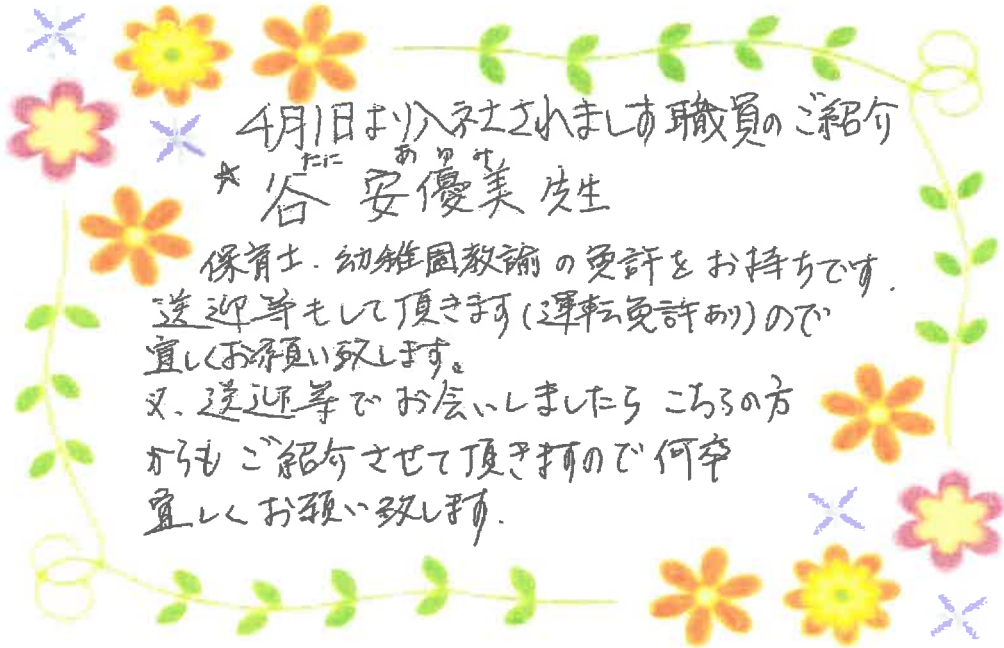 4月1日より入社されまします職員のご紹介
たに あゆみ
☆ 谷 安優美 先生
保育士、幼稚園教諭の免許をお持ちです.
送迎等もして頂きます(運転免許あり)ので
宜しくお願い致します。
又、送迎等でお会いしましたら こちらの方
からも ご紹介させて頂きますので何卒
宜しくお願い致します.